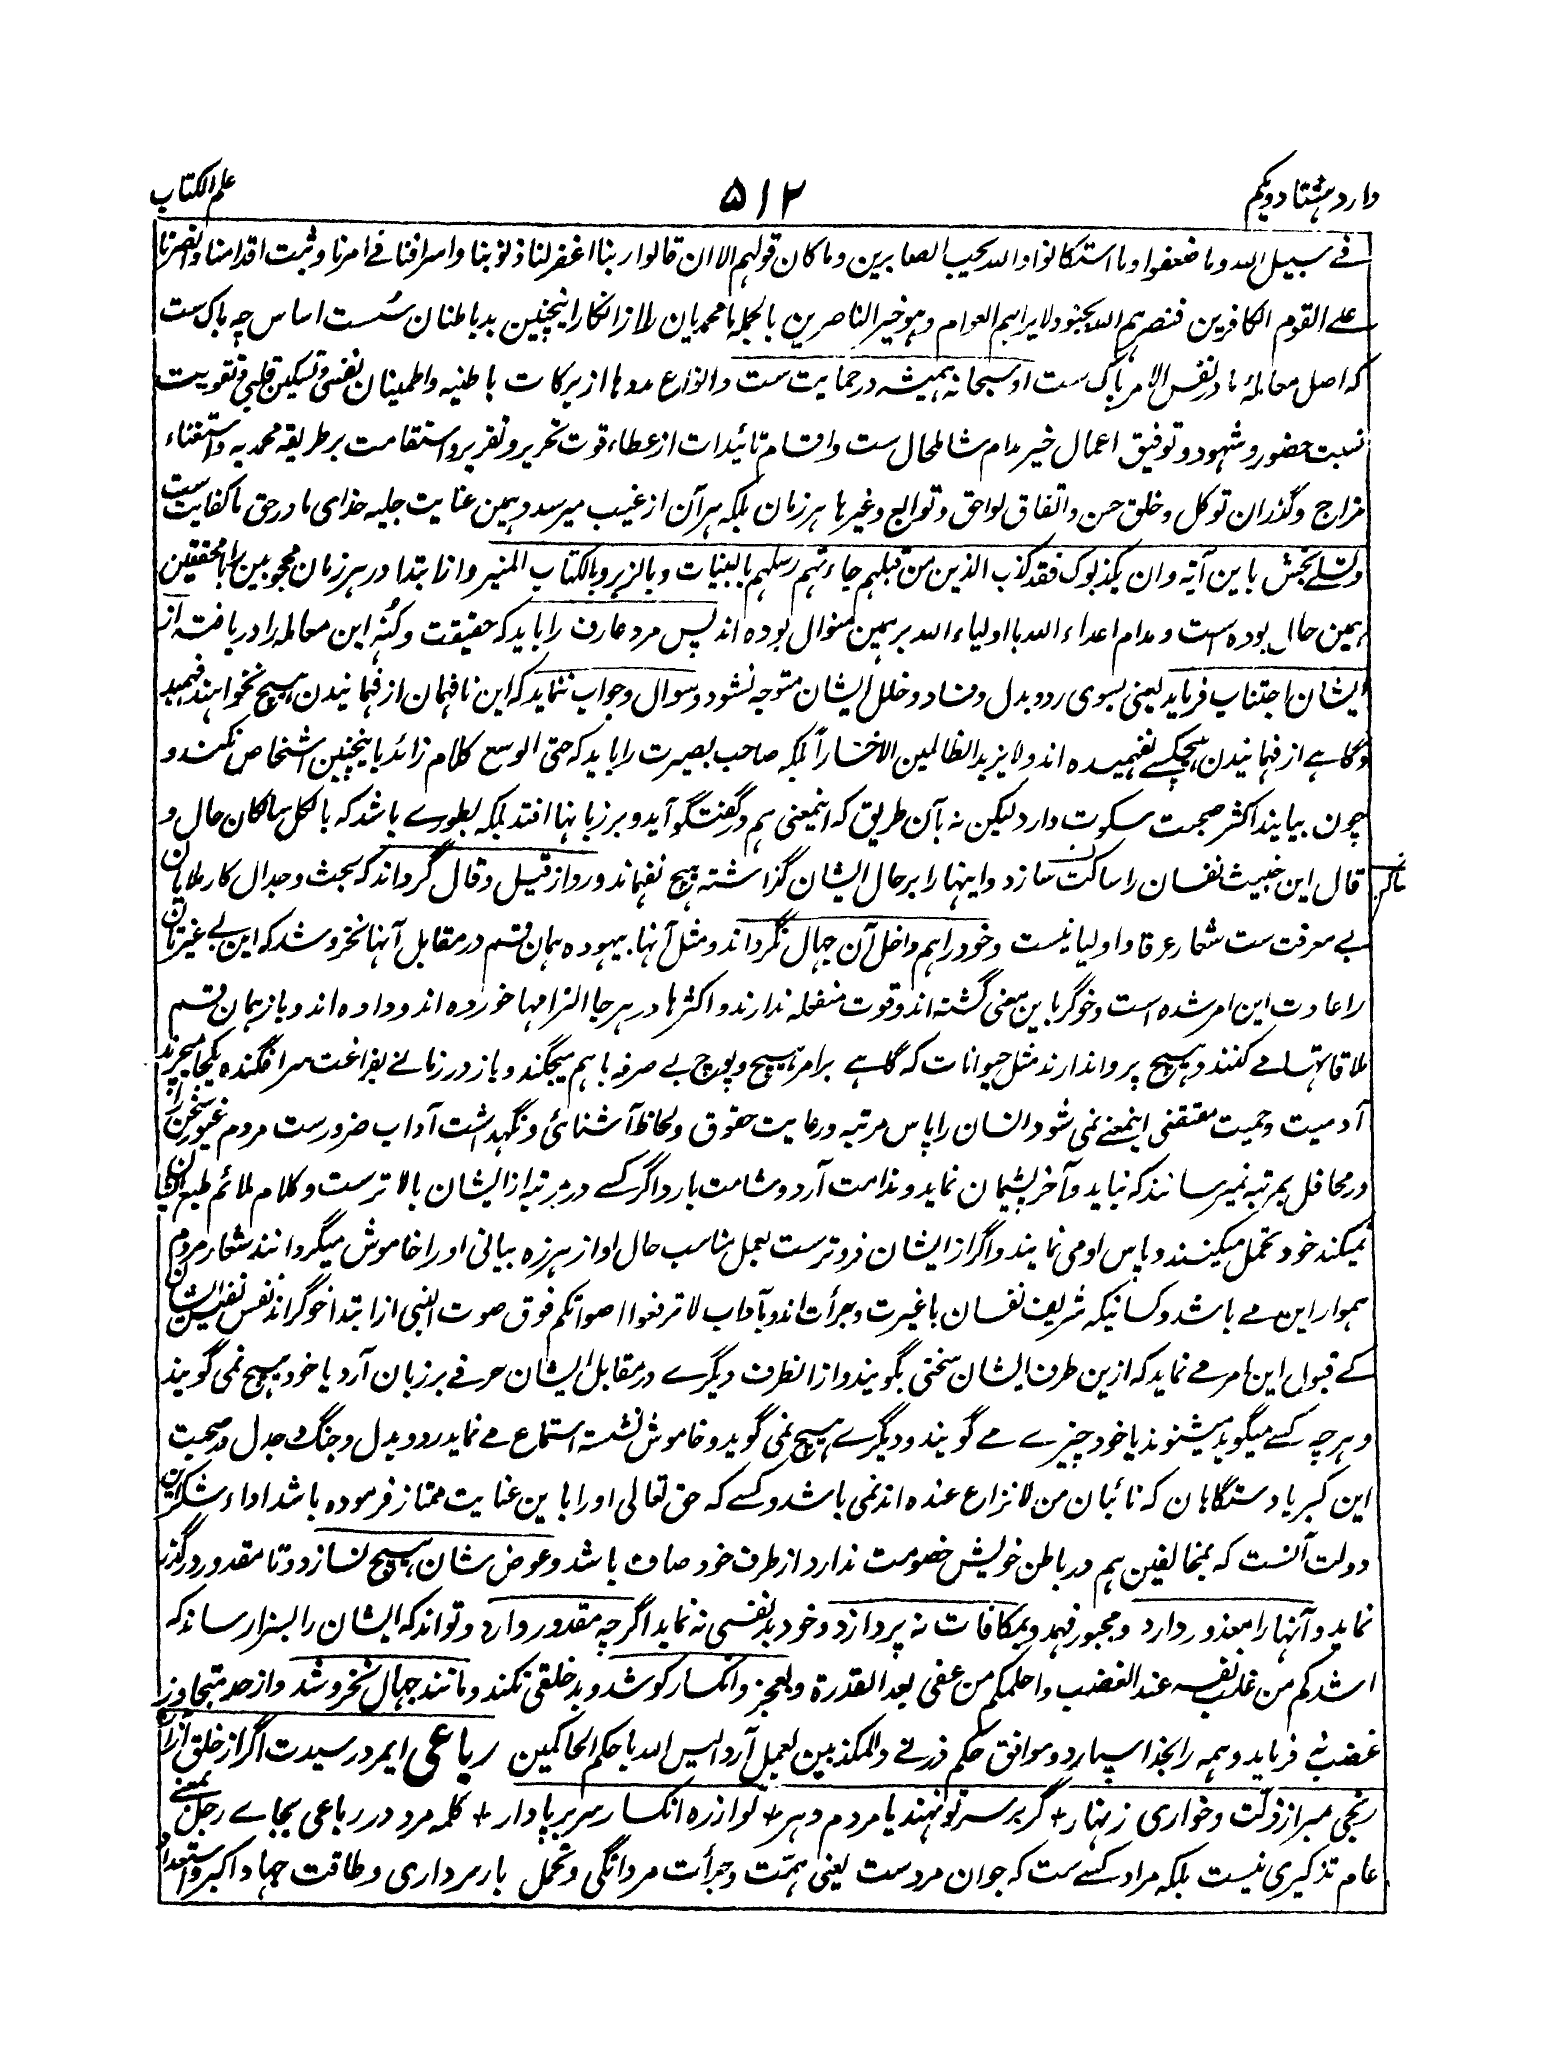 وارد هشتاد و یکم
۵۱۲
علم الکتاب
فے سبیل الله وما ضعفوا وما استکانوا والله یحب الصابرین وما کان قولهم الا ان قالوا ربنا اغفر لنا ذنوبنا واسرافنا فے امرنا وثبت اقدامنا وانصرنا
علے القوم الکافرین فنصرهم الله بجنود لا یراهم العوام وهو خیر الناصرین بالجمله ما محمدیان را از انکار اینچنین بدباطنان سُست اساس چه باک ست
که اصل معاملهٔ ما در نفس الامر پاک ست او سبحانه همیشه در حمایت ست و انواع مددها از برکات باطنیه و اطمینان نفسی و تسکین قلبی و تقویت
نسبت حضور و شهود و توفیق اعمال خیر مدام شامل حال ست و اقسام تائیدات از عطاء قوت تحریر و تقریر و استقامت بر طریقه محمدیه و استغناء
مزاج و گذران توکل و خلق حسن و اتفاق لواحق و توابع و غیرها هر زمان بلکه هر آن از غیب میرسد و همین عنایت جلیه خدای ما در حق ما کفایت ست
و تسلے بخش باین آیه وان یکذبوک فقد کذب الذین من قبلهم جاءتهم رسلهم بالبینات و بالزبر و بالکتاب المنیر و از ابتدا در هر زمان محجوبین را با محققین
همین حال بوده است و مدام اعداء الله با اولیاء الله بر همین منوال بوده اند پس مرد عارف را باید که حقیقت و کُنه این معامله را دریافته از
ایشان اجتناب فرماید یعنی بسوی رد و بدل و فساد و خلل ایشان متوجه نشود و سوال و جواب ننماید که این نافهمان از فهمانیدن هیچ نخواهند فهمید
و گاهے از فهمانیدن هیچکسے نفهمیده اند ولا یزید الظالمین الا خسارا بلکه صاحب بصیرت را باید که حتی الوسع کلام زائد با اینچنین اشخاص نکند و
چون بیایند اکثر صحبت سکوت دارد لیکن نه بآن طریق که اینمعنی هم در گفتگو آید و بر زبانها افتد بلکه بطورے باشد که بالکل ساکنان حال و
قال این خبیث نفسان را ساکت سازد و اینها را بر حال ایشان گذاشته هیچ نفهماند و رو از قیل و قال گرداند که بحث و جدال کار ملایان
بے معرفت ست شعار عرفا و اولیا نیست و خود را هم داخل آن جهال نگرداند و مثل آنها بیهوده همان قسم در مقابل آنها نخروشد که این بے غیرتان
را عادت این امر شده است و خوگر باین معنی گشته اند و قوت منفعله ندارند و اکثرها در هر جا الزامها خورده اند و داده اند و باز همان قسم
ملاقاتها مے کنند و هیچ پروا ندارند مثل حیوانات که گاهے برامر هیچ و پوچ بے صرفه باهم میجنگند و باز در زمانے بفراغت سر افگنده یکجا میچرند
آدمیت و حمیت مقتضی اینمعنے نمی شود انسان را پاس مرتبه و رعایت حقوق و لحاظ آشنائی و نگهداشت آداب ضرورست مردم غیور سخن را
در محافل بمرتبه نمیرسانند که نباید و آخر پشیمان نماید و ندامت آرد و شامت بارد اگر کسے در مرتبه از ایشان بالاترست و کلام ملائم طبع ایشان
نمیکند خود تحمل میکنند و پاس او می نمایند و اگر از ایشان فروترست بعمل مناسب حال او از هرزه بیانی او را خاموش میگردانند شعار مردم
هموار این مے باشد و کسانیکه شریف نفسان باغیرت و جرأت اند و بآداب لا ترفعوا اصواتکم فوق صوت النبی از ابتدا خوگراند نفس نفیس ایشان
کے قبول این امر مے نماید که ازین طرف ایشان سخنی بگویند و از انطرف دیگرے در مقابل ایشان حرفے بر زبان آرد یا خود هیچ نمی گویند
و هرچه کسے میگوید میشنوند یا خود چیزے مے گویند و دیگرے هیچ نمی گوید و خاموش نشسته استماع مے نماید رد و بدل و جنگ و جدل در صحبت
این کبریا دستگاهان که نائبان من لا نزاع عنده اند نمی باشد و کسے که حق تعالی او را باین عنایت ممتاز فرموده باشد اداء شکر این
دولت آنست که بمخالفین هم در باطن خویش خصومت ندارد از طرف خود صاف باشد و عوض شان هیچ نسازد و تا مقدور درگذر
نماید و آنها را معذور دارد و مجبور فهمد و بمکافات نه پردازد و خود بد نفسی نه نماید اگرچه مقدور دارد و تواند که ایشان را بسزا رساند که
اشدکم من غلب نفسه عند الغضب و احلمکم من عفی بعد القدرة و بعجز و انکسار کوشد و بد خلقی نکند و مانند جهال نخروشد و از حد متجاوز
غضبے نه فرماید و همه را بخدا سپارد و موافق حکم ذرنی والمکذبین بعمل آرد الیس الله باحکم الحاکمین رباعی ایمرد رسیدت اگر از خلق آزار
رنجی مبر از ذلت و خواری زنهار + گر بر سر تو نهند پا مردم دهر + تو از ره انکسار سر بر پا دار + کلمه مرد در رباعی بجاے رجل بمعنے
عام تذکیری نیست بلکه مراد کسے ست که جوان مردست یعنی همت و جرأت مردانگی و تحمل باربرداری و طاقت جهاد اکبر و استعداد